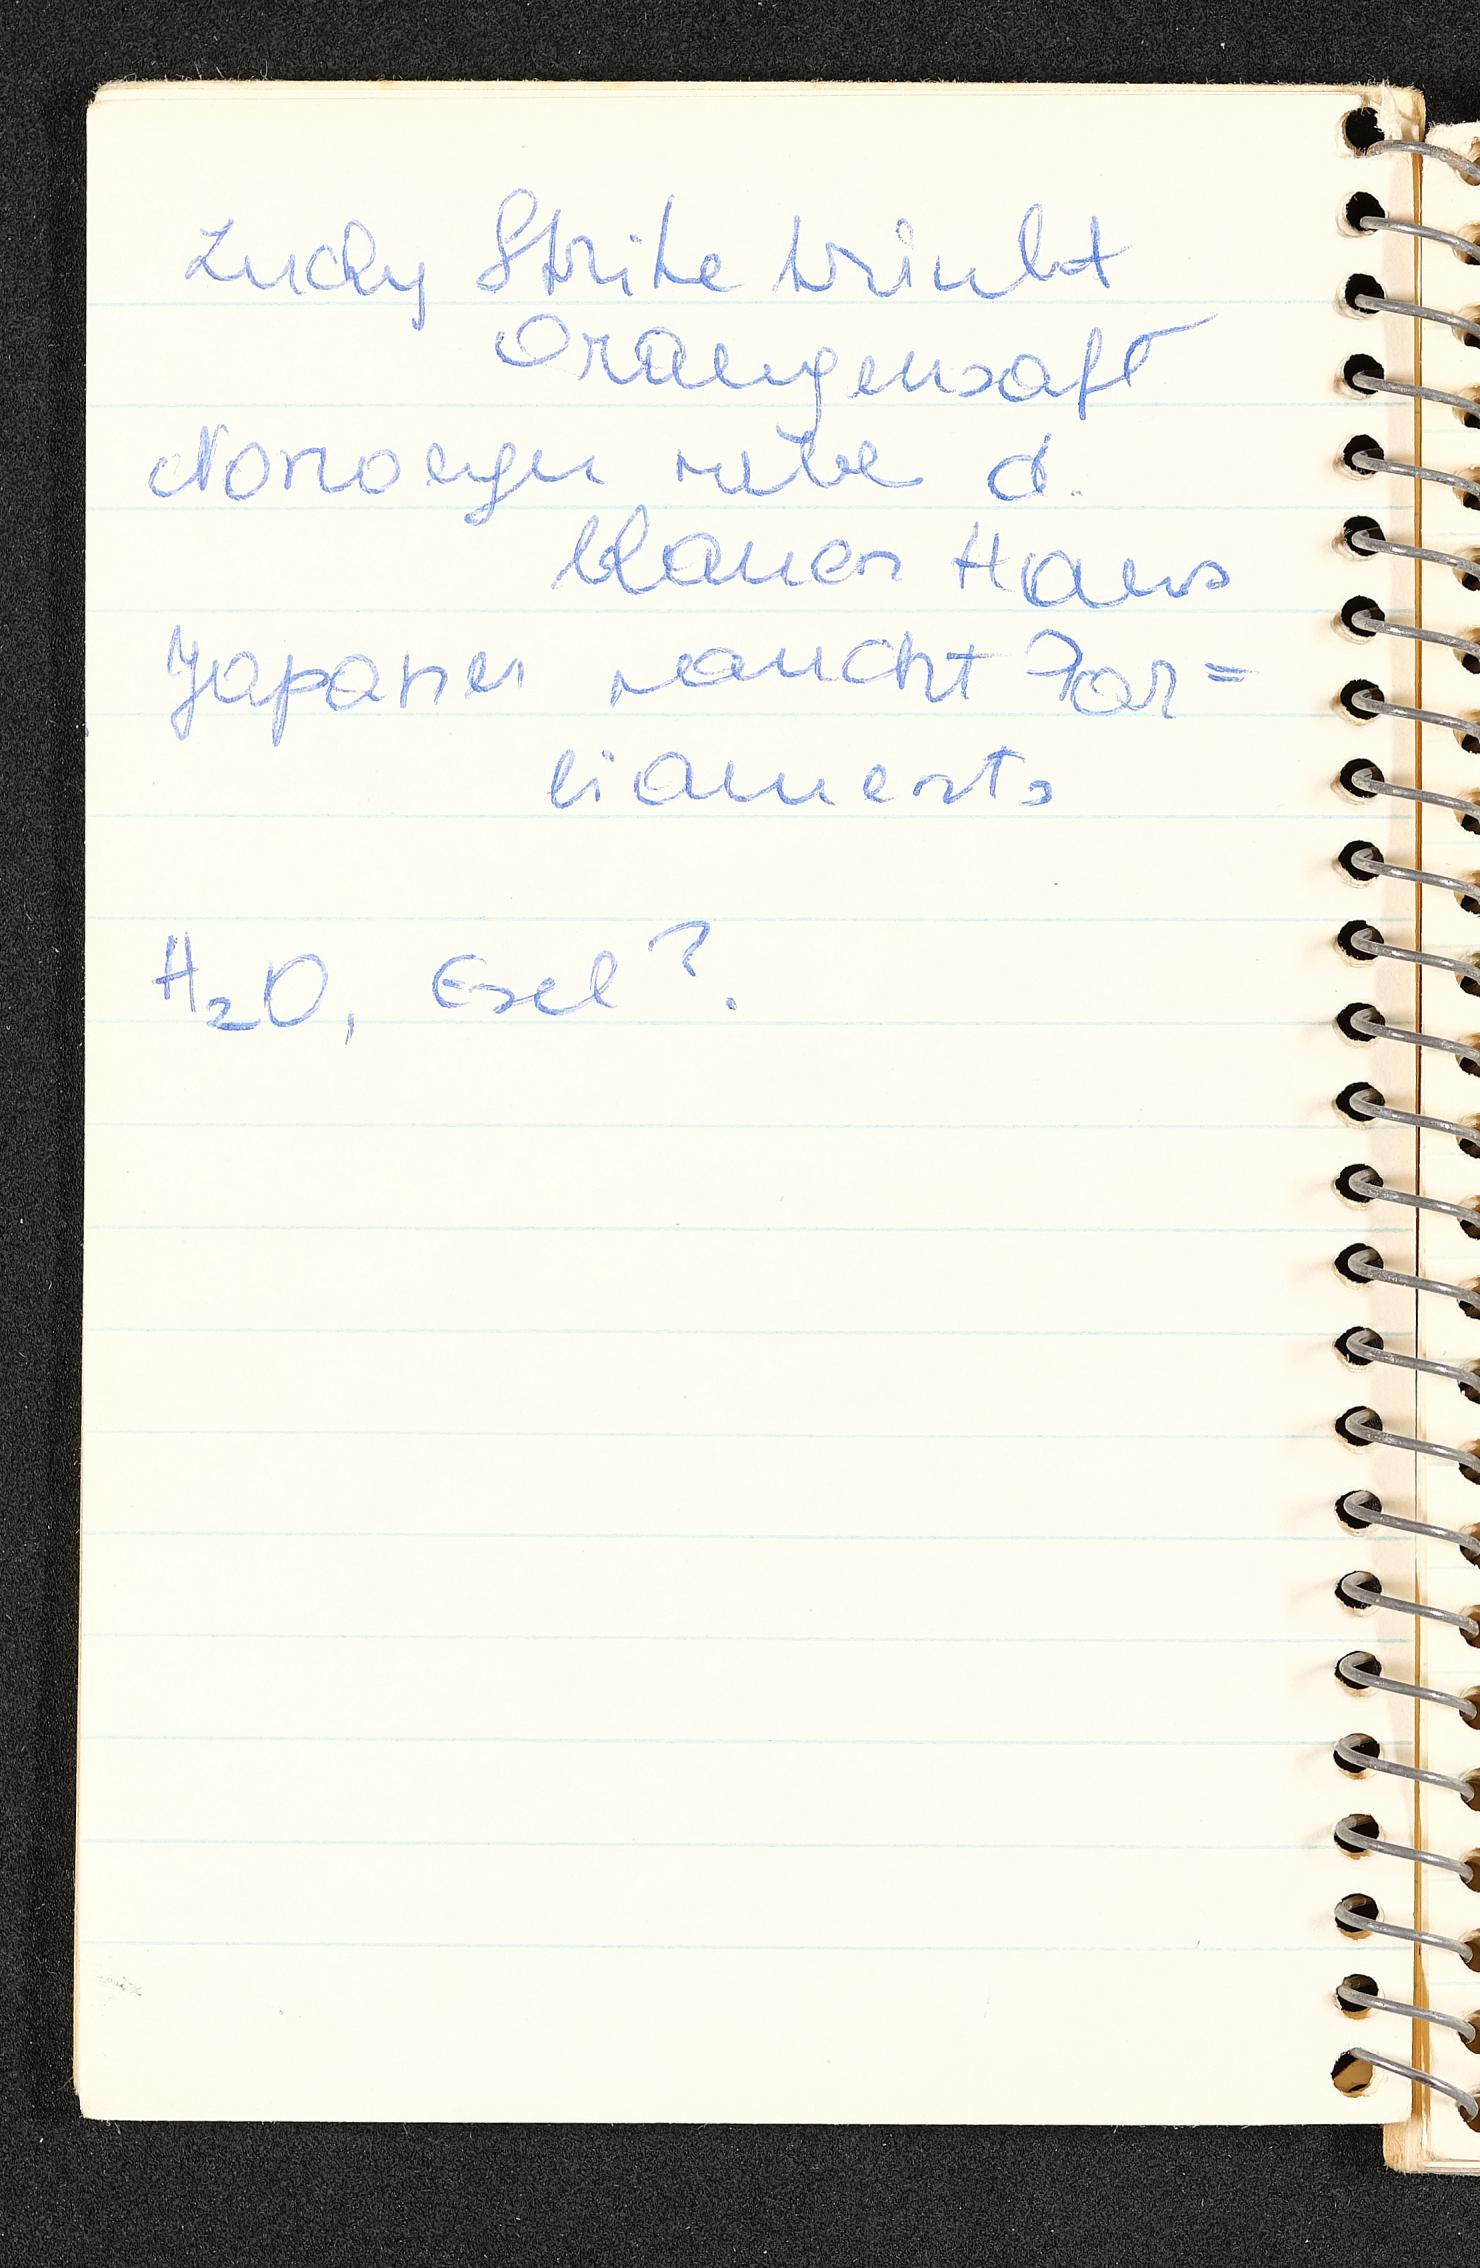 Lucky Strike trinkt
Orangensaft
Norweger nebe d.
blauen Haus
Japaner raucht Par=
liaments
H₂O, Esel?